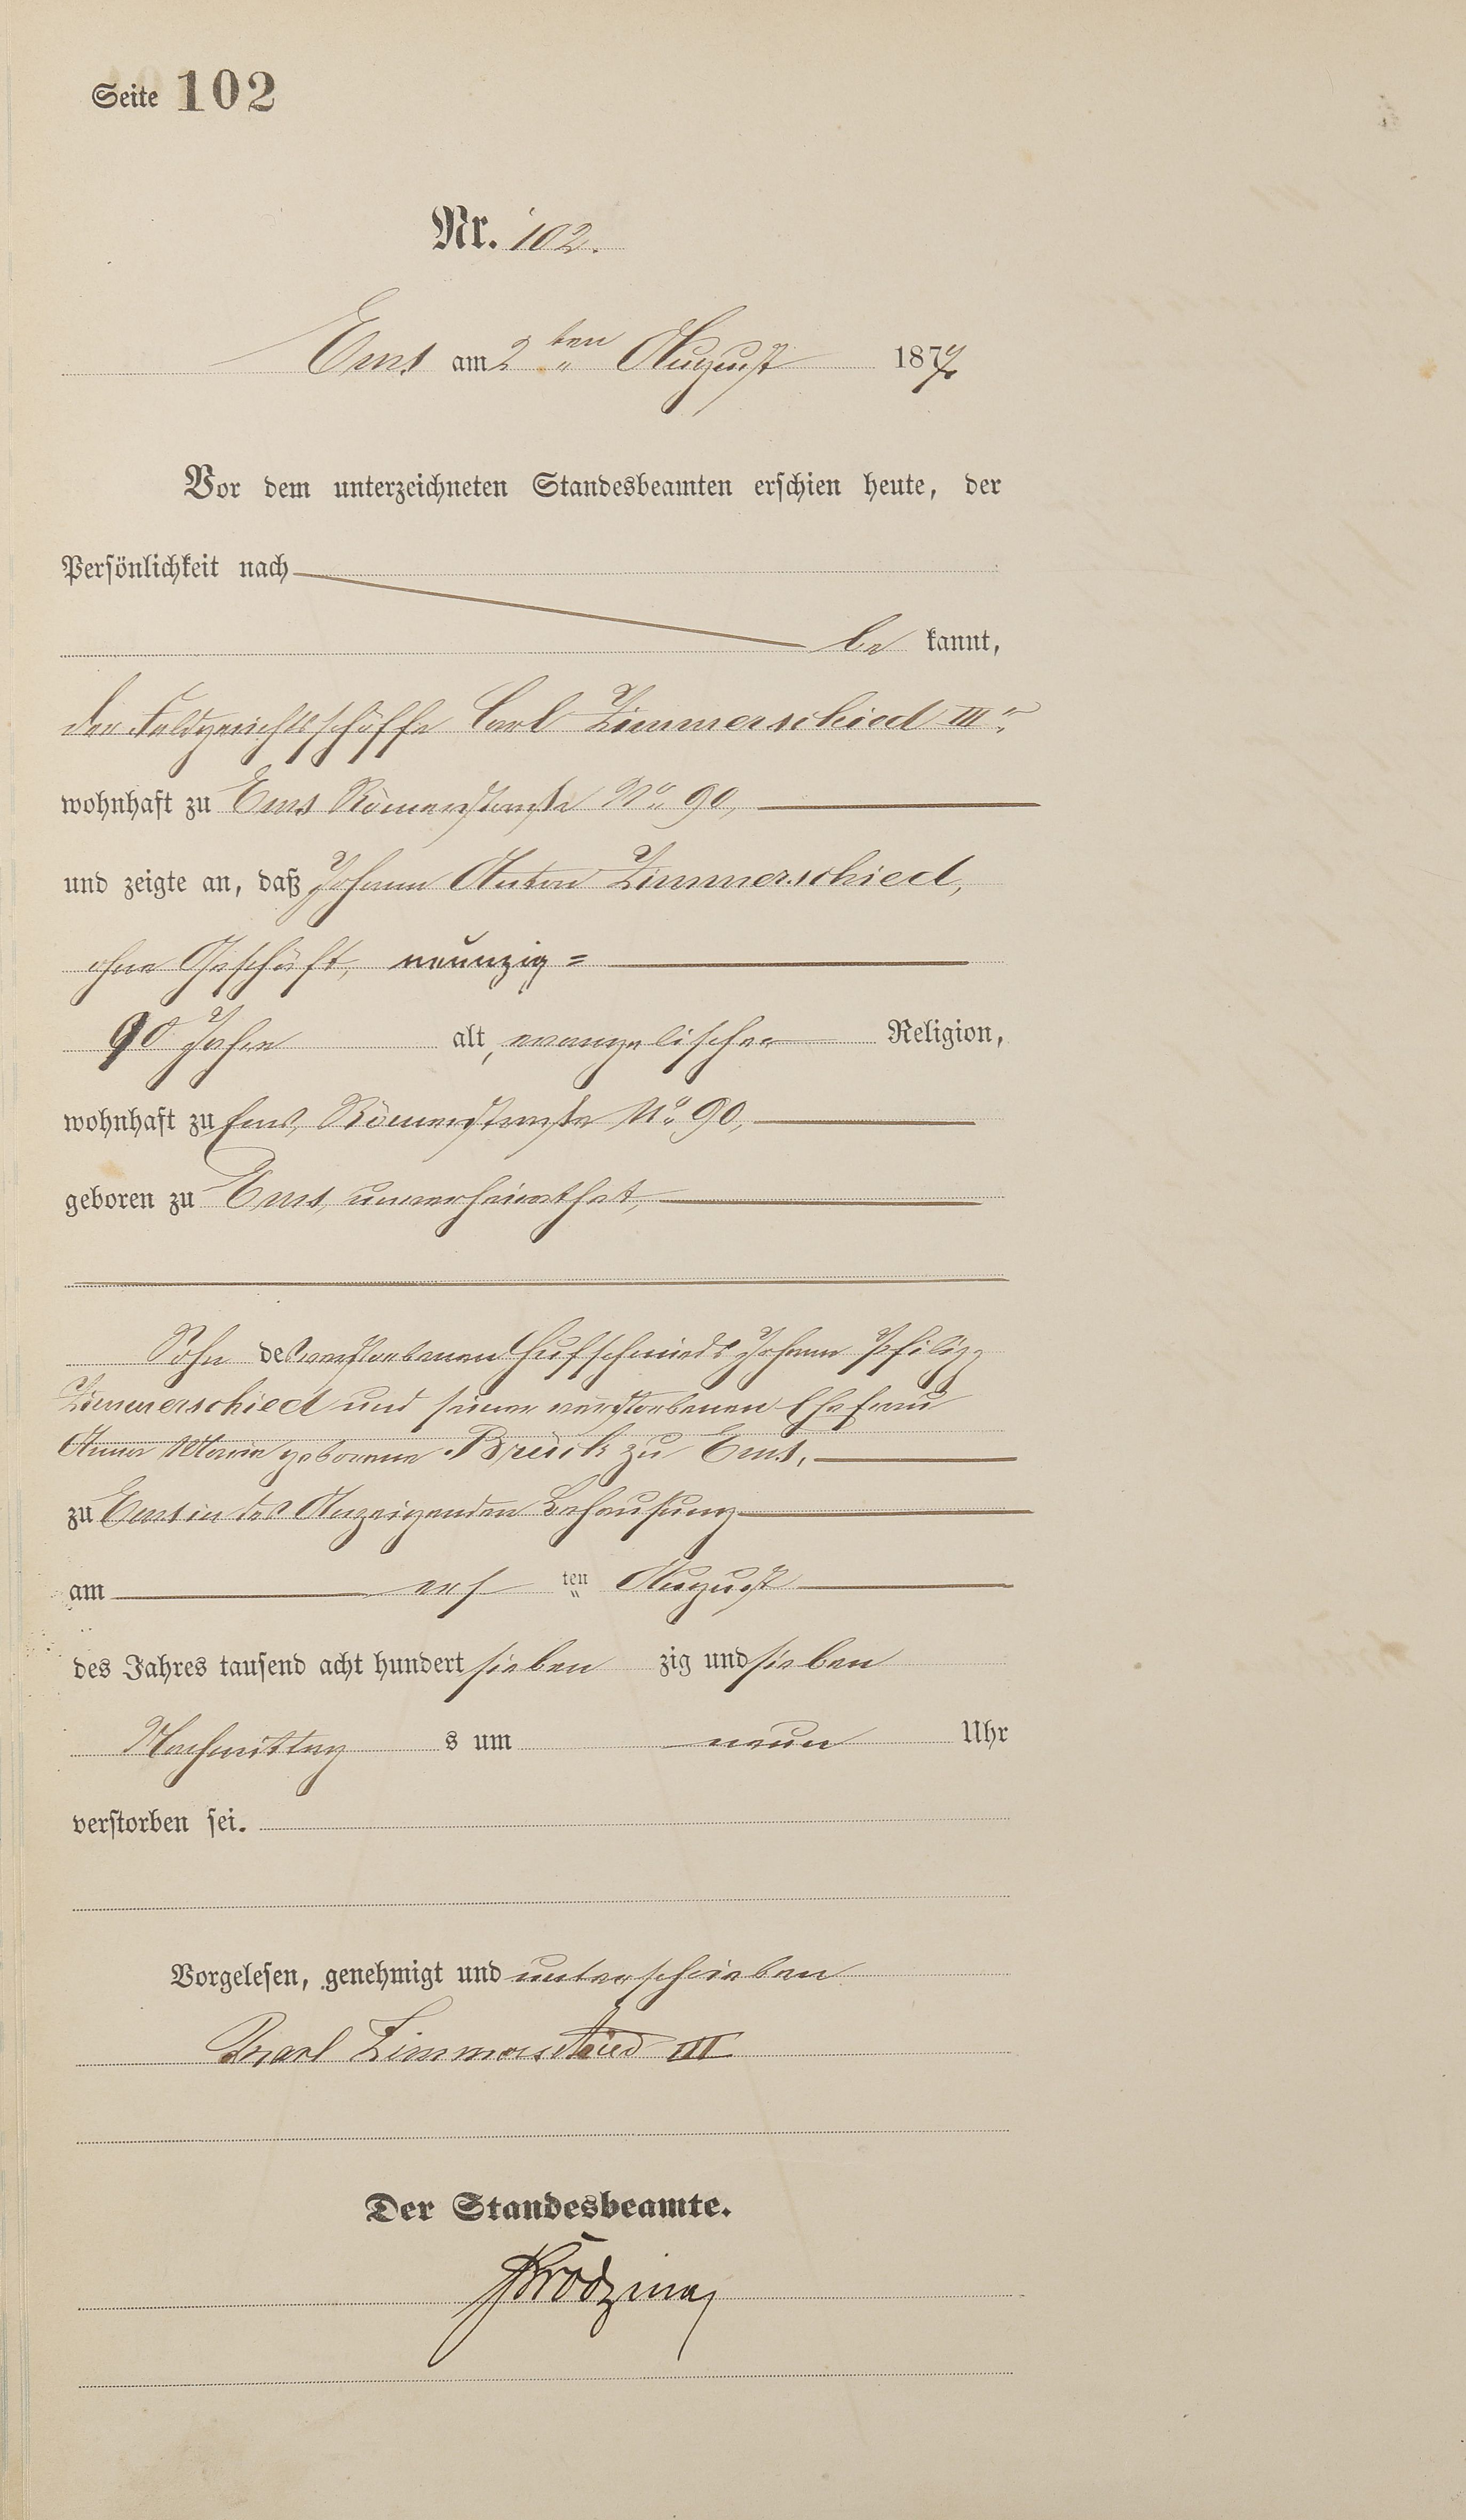 Seite 102
Nr. 102.
Ems am 2 ten August 1877.
Vor dem unterzeichneten Standesbeamten erschien heute, der
Persönlichkeit nach
be kannt,
der Feldgerichtsschöffe Carl Zimmerschied III r.
wohnhaft zu Ems Römerstraße No. 90,
und zeigte an, daß Johann Anton Zimmerschied,
ohne Geschäft, neunzig =
90 Jahre alt, evangelischer Religion,
wohnhaft zu Ems, Römerstraße No. 90,
geboren zu Ems, unverheirathet,
Sohn des verstorbenen Hufschmieds Johann Philipp
Zimmerschied und seiner verstorbenen Ehefrau
Anna Maria geborene Brück zu Ems,
zu Ems in des Anzeigenden Behausung
am ers ten August
des Jahres tausend acht hundert sieben zig und sieben
Nachmittag s um neun Uhr
verstorben sei.
Vorgelesen, genehmigt und unterschrieben
Karl Zimmerschied III
Der Standesbeamte.